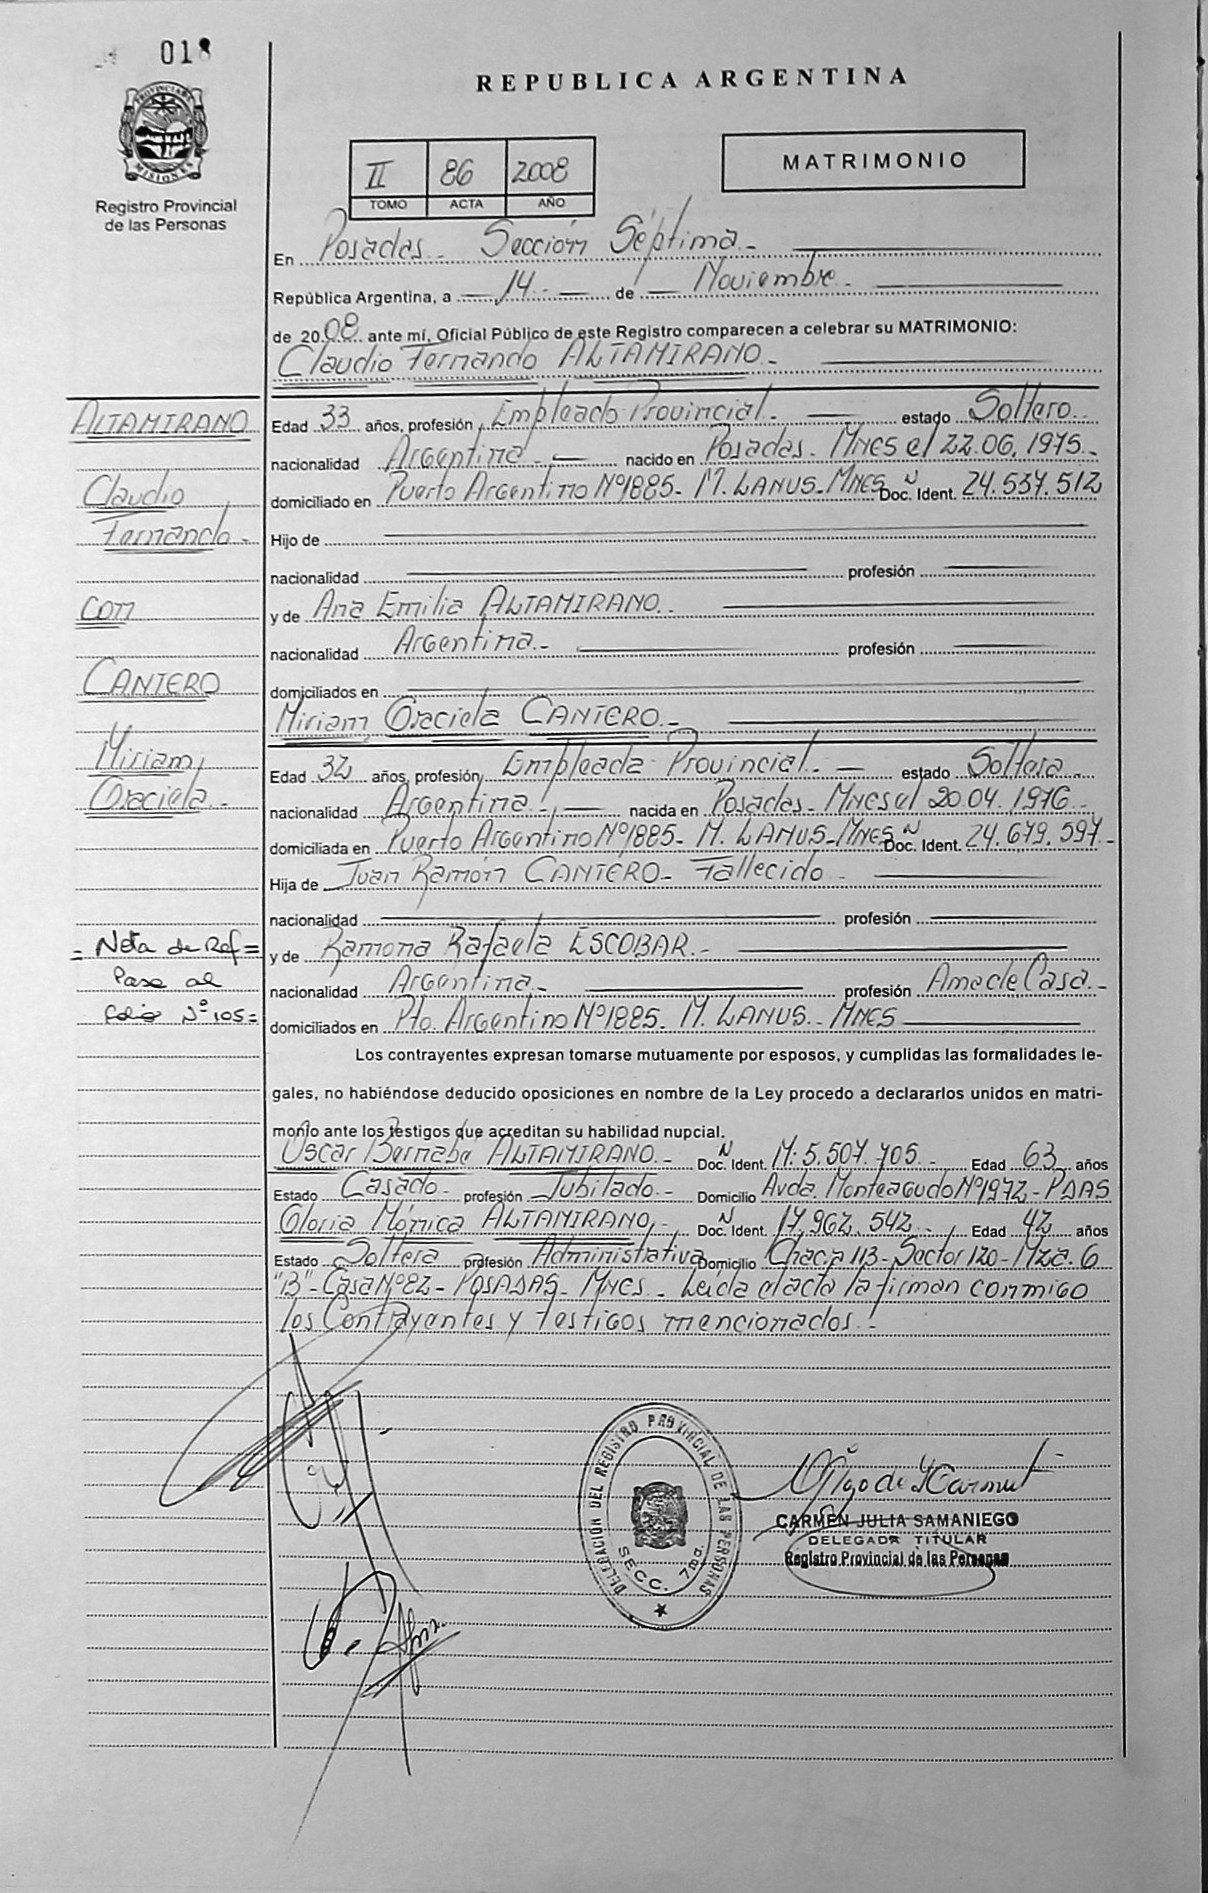 018
PROVINCIA DE
MISIONES
Registro Provincial
de las Personas
REPUBLICA ARGENTINA
II 86 2008
TOMO ACTA AÑO
MATRIMONIO
En Posadas - Sección Séptima -
República Argentina, a 14 - de Noviembre -
de 2008 ante mí, Oficial Público de este Registro comparecen a celebrar su MATRIMONIO:
Claudio Fernando ALTAMIRANO -
ALTAMIRANO
Claudio
Fernando -
con
CANTERO
Miriam
Graciela -
= Nota de Ref =
Pase al
folio Nº 105 =
Edad 33 años, profesión Empleado Provincial. estado Soltero.
nacionalidad Argentina - nacido en Posadas - Mnes el 22.06.1975 -
domiciliado en Puerto Argentino Nº 1885 - M. LANUS - MNES Doc. Ident. 24.537.512
Hijo de
nacionalidad profesión
y de Ana Emilia ALTAMIRANO -
nacionalidad Argentina - profesión
domiciliados en
Miriam Graciela CANTERO -
Edad 32 años, profesión Empleada Provincial. estado Soltera -
nacionalidad Argentina - nacida en Posadas - Mnes el 20.04.1976 -
domiciliada en Puerto Argentino Nº 1885 - M. LANUS - MNES Doc. Ident. 24.679.597 -
Hija de Juan Ramón CANTERO - Fallecido -
nacionalidad profesión
y de Ramona Rafaela ESCOBAR -
nacionalidad Argentina - profesión Ama de Casa -
domiciliados en Pto. Argentino Nº 1885 - M. LANUS - MNES
Los contrayentes expresan tomarse mutuamente por esposos, y cumplidas las formalidades le-
gales, no habiéndose deducido oposiciones en nombre de la Ley procedo a declararlos unidos en matri-
monio ante los testigos que acreditan su habilidad nupcial.
Oscar Bernabé ALTAMIRANO - Doc. Ident. M: 5.507.705 - Edad 63 años
Estado Casado - profesión Jubilado - Domicilio Avda. Monteagudo Nº 1972 - PDAS
Gloria Mónica ALTAMIRANO - Doc. Ident. 17.962.542 - Edad 42 años
Estado Soltera profesión Administrativa Domicilio Chacra 113 - Sector 120 - Mza. 6
"B" - Casa Nº 82 - POSADAS - MNES - Leída el acta la firman conmigo
los Contrayentes y testigos mencionados -
DELEGACIÓN DEL REGISTRO PROVINCIAL DE LAS PERSONAS
SECC. 7ma.
CARMEN JULIA SAMANIEGO
DELEGADA TITULAR
Registro Provincial de las Personas